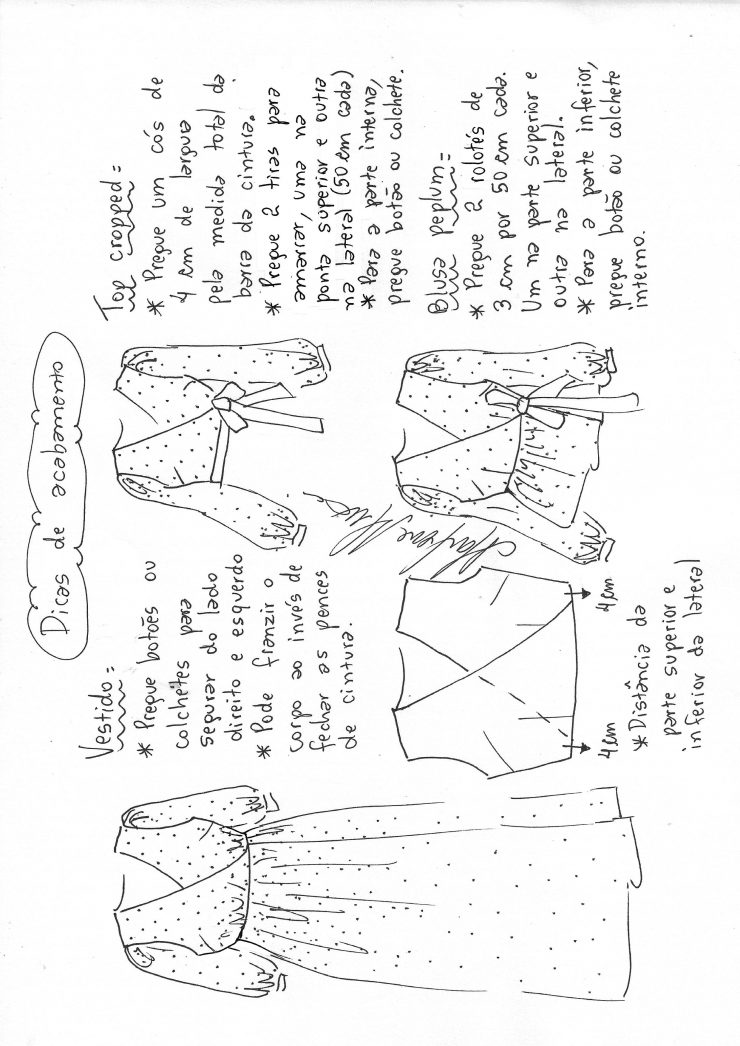 Dicas de acabamento
Vestido:
* Pregue botões ou
colchetes para
segurar do lado
direito e esquerdo
* Pode franzir o
corpo ao invés de
fechar as pences
de cintura.
Top cropped:
* Pregue um cós de
4 cm de largura
pela medida total da
barra da cintura.
* Pregue 2 tiras para
amarrar, uma na
ponta superior e outra
na lateral (50 cm cada)
* Para a parte interna,
pregue botão ou colchete.
4 cm
4 cm
* Distância da
parte superior e
inferior da lateral
Blusa peplum:
* Pregue 2 rolotés de
3 cm por 50 cm cada.
Um na parte superior e
outra na lateral.
* Para a parte inferior,
pregue botão ou colchete
interno.